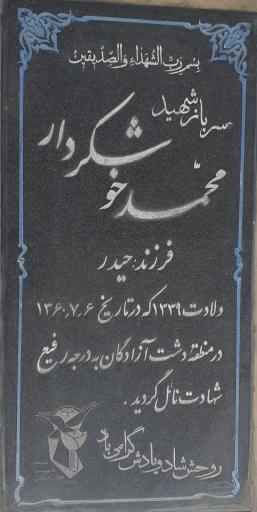 بسم رب الشهداء والصديقين
سرباز شهید
محمد خوشکردار
فرزند: حیدر
ولادت ۱۳۳۹ که در تاریخ ۱۳۶۰٫۷٫۶
در منطقه دشت آزادگان به درجه رفیع
شهادت نائل گردید.
روحش شاد و یادش گرامی باد